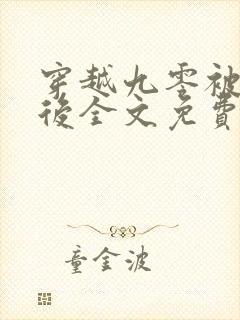 穿越九零被
後全文免費
童金波